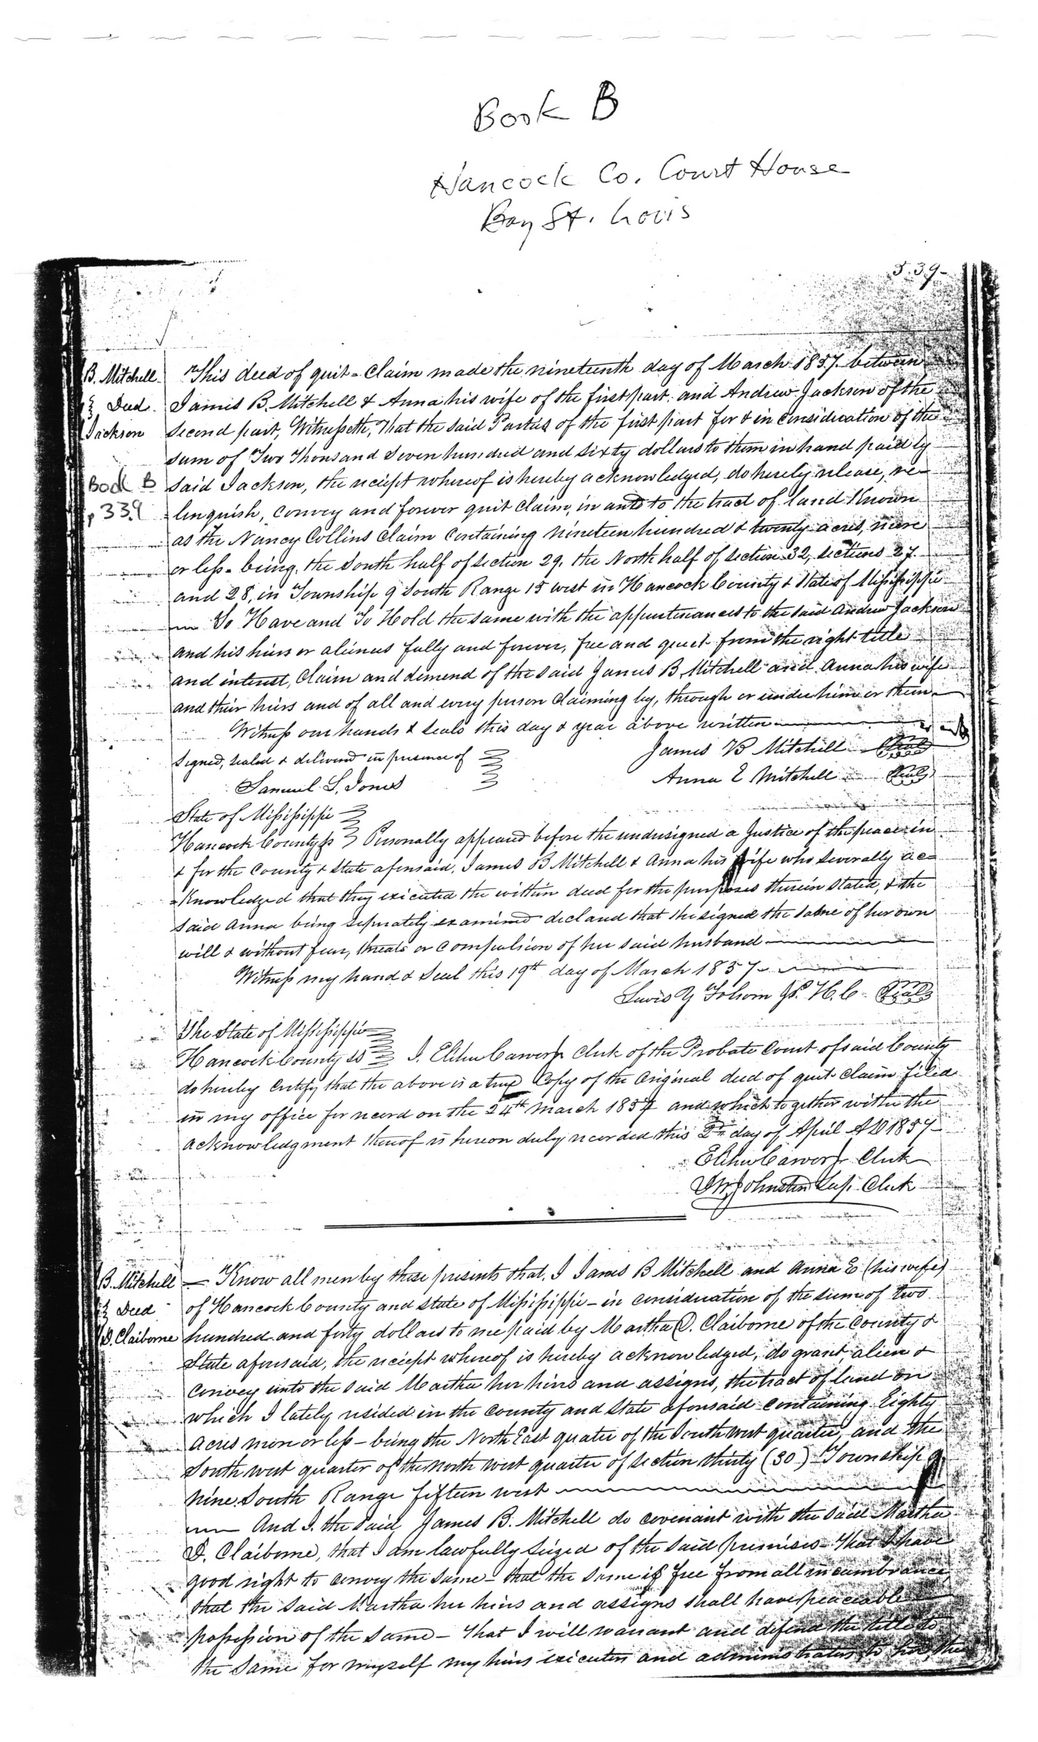 Book B
Hancock Co. Court House
Bay St. Louis
339
B. Mitchell
Deed
Jackson
Book B
p 339
This deed of quit-Claim made the nineteenth day of March 1857 between
James B. Mitchell & Anna his wife of the first part, and Andrew Jackson of the
Second part, Witnesseth, That the said Parties of the first part for & in consideration of the
sum of Two Thousand Seven hundred and sixty dollars to them in hand paid by
said Jackson, the reciept whereof is hereby acknowledged, do hereby release, re-
linquish, convey and forever quit claim, in and to the tract of land Known
as the Nancy Collins Claim Containing nineteen hundred & twenty acres, more
or less- being, the South half of Section 29, the North half of Section 32, Sections 27
and 28, in Township 9 South Range 15 west in Hancock County & State of Mississippi
To Have and To Hold the same with the appurtenances to the said Andrew Jackson
and his heirs or alienes fully and forever, free and quiet from the right title
and interest, Claim and demend of the said James B Mitchell and Anna his wife
and their heirs and of all and every person Claiming by, through or under him or them
Witness our hands & seals this day & year above written
Signed, sealed & delivered in presence of
James B Mitchell Seal
Samuel L. Jones
Anna E Mitchell Seal
State of Mississippi
Hancock County ss Personally appeared before the undersigned a Justice of the peace in
& for the County & State aforesaid, James B Mitchell & Anna his wife who severally ac-
Knowledged that they executed the within deed for the purposes therein stated, & the
said Anna being seperately examined declared that she signed the same of her own
will & without fear, threats or compulsion of her said husband
Witness my hand & Seal this 19th day of March 1857
Lewis Folsom J.P. H.C. Seal
The State of Mississippi
Hancock County ss I, Elihu Carver Jr Clerk of the Probate Court of said County
do hereby certify that the above is a true Copy of the original deed of quit claim filed
in my office for record on the 24th March 1857 and which together with the
acknowledgment thereof is hereon duly recorded this 2nd day of April AD 1857
Elihu Carver Jr Clerk
Johnston Dep. Clerk
B. Mitchell
Deed
D. Claiborne
Know all men by these presents that, I James B Mitchell and Anna E (his wife)
of Hancock County and State of Mississippi - in consideration of the sum of two
hundred and forty dollars to me paid by Martha D. Claiborne of the County &
State aforesaid, the reciept whereof is hereby acknowledged, do grant alien &
convey unto the said Martha her heirs and assigns, the tract of land on
which I lately resided in the County and State aforesaid containing Eighty
acres more or less - being the North East quater of the South west quarter, and the
South west quarter of the north west quarter of Section thirty (30) Township
nine South Range fifteen west
And I, the said James B. Mitchell do covenant with the said Martha
D. Claiborne, that I am lawfully Seized of the said premises - That I have
good right to convey the same - that the same is free from all incumbrance
that the said Martha her heirs and assigns shall have peaceable
possession of the same - That I will warrant and defend the title to
the same for myself my heirs executors and administrators to her, the